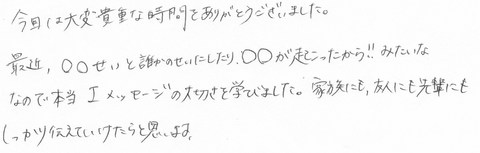 今回は大変貴重な時間をありがとうございました。
最近、〇〇せいと誰かのせいにしたり、〇〇が起こったから!! みたいな
なので本当 Iメッセージの大切さを学びました。家族にも、友人にも先輩にも
しっかり伝えていけたらと思います。